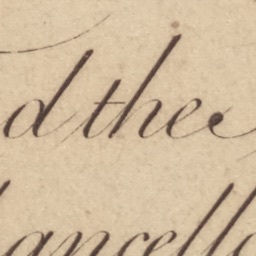 d the
ancello